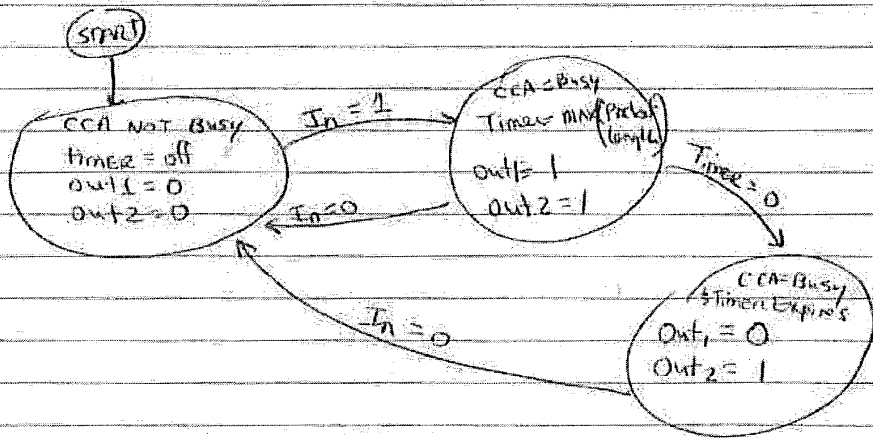 START
CCA NOT Busy
timer = off
out1 = 0
out2 = 0
In = 1
In = 0
CCA = Busy
Timer = MAX (Packet length)
out1 = 1
out2 = 1
Timer = 0
CCA = Busy
& Timer Expires
Out1 = 0
Out2 = 1
In = 0